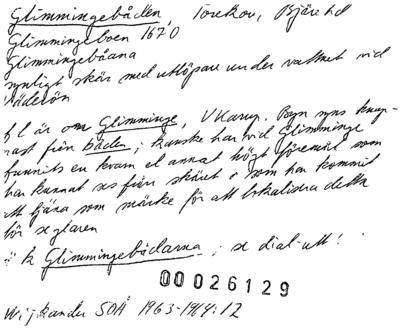 Glimmingebåden, Torekov, Bjäre hd
Glimmingeboen 1670
Glimmingebåana
synligt skär med utlöpare under vattnet vid
Väderön
f l är on Glimminge, V Karup. Byn syns knap-
nast från båden; kanske har vid Glimminge
funnits en kvarn el annat högt föremål som
har kunnat ses från skäret o som har kommit
att tjäna som märke för att lokalisera detta
för seglaren
k Glimmingebådarna; se dial-utt!
00026129
Wijkander SOÅ 1963-1964:12